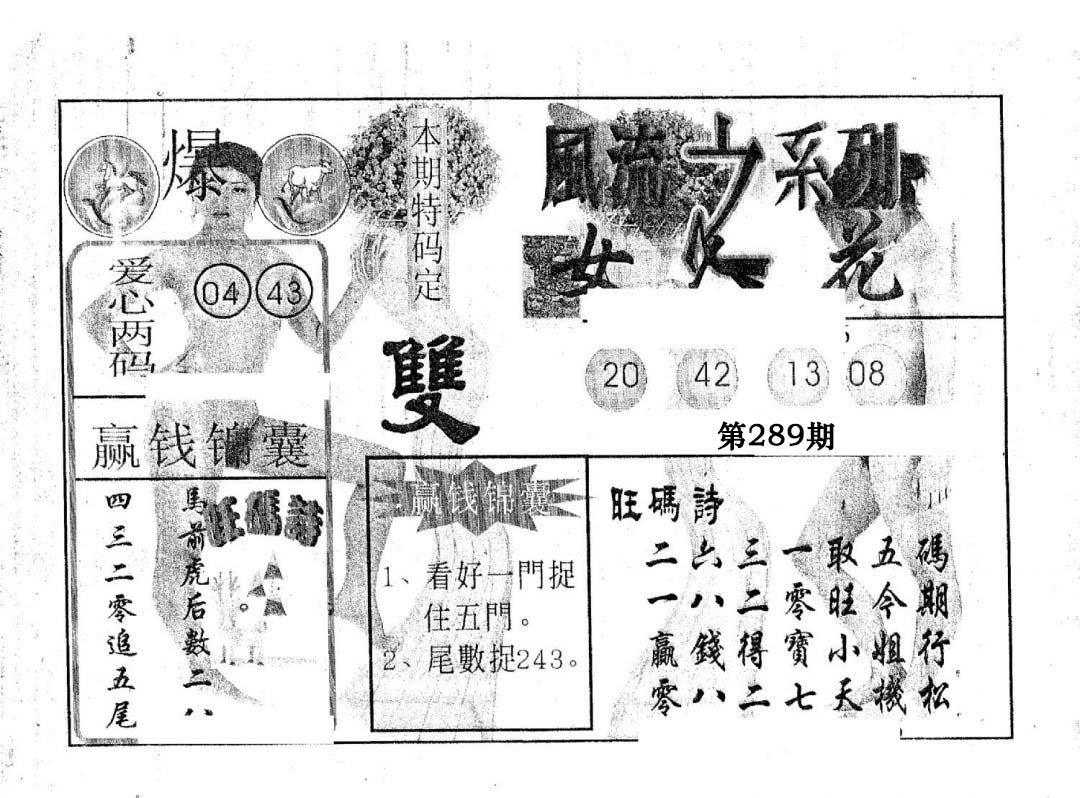 爆
本期特码定
雙
風流之系列
女人花
爱心两码
04 43
20 42 13 08
第289期
赢钱锦囊
旺碼詩
馬前虎后數二八
四三二零追五尾。
赢钱锦囊
1、看好一門捉
住五門。
2、尾數捉243。
旺碼詩
二六三一取五碼
一八二零旺今期
贏錢得寶小姐行
零八二七天機松